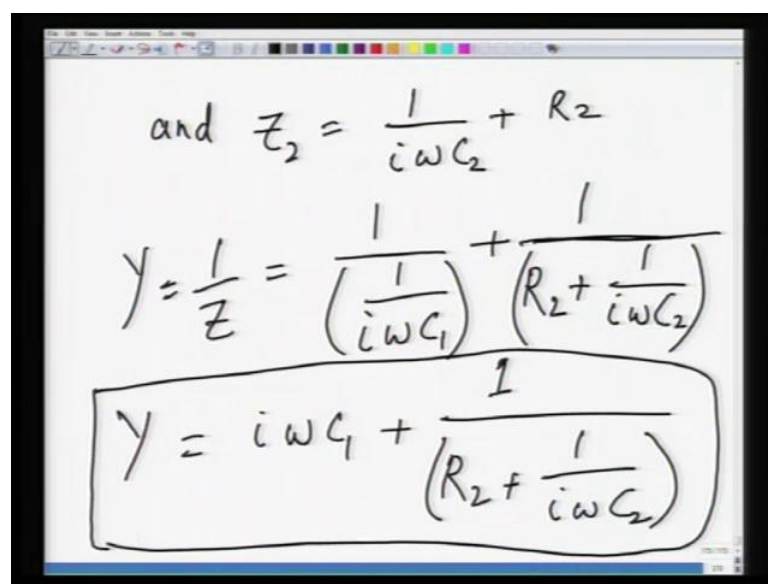 File Edit View Insert Actions Tools Help
and Z₂ = 1/(iωC₂) + R₂
Y = 1/Z = 1/(1/(iωC₁)) + 1/(R₂ + 1/(iωC₂))
Y = iωC₁ + 1/(R₂ + 1/(iωC₂))